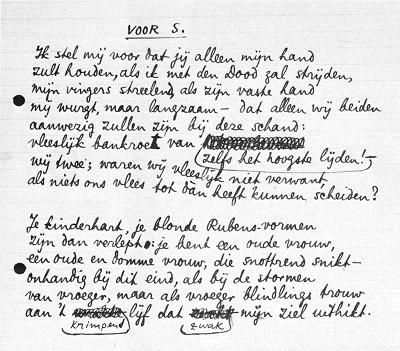 VOOR S.
Ik stel mij voor dat jij alleen mijn hand
zult houden, als ik met den Dood zal strijden,
mijn vingers streelend als zijn vaste hand
mij wurgt, maar langzaam – dat alleen wij beiden
aanwezig zullen zijn bij deze schand:
vleeslijk bankroet van
zelfs het hoogste lijden! –
wij twee; waren wij vleeslijk niet verwant,
als niets ons vlees tot dan heeft kunnen scheiden?
Je kinderhart, je blonde Rubens-vormen
zijn dan verlept: je bent een oude vrouw,
een oude en domme vrouw, die snottrend snikt –
onhandig bij dit eind, als bij de stormen
van vroeger, maar als vroeger blindlings trouw
aan 't lijf dat mijn ziel uithikt.
krimpend zwak